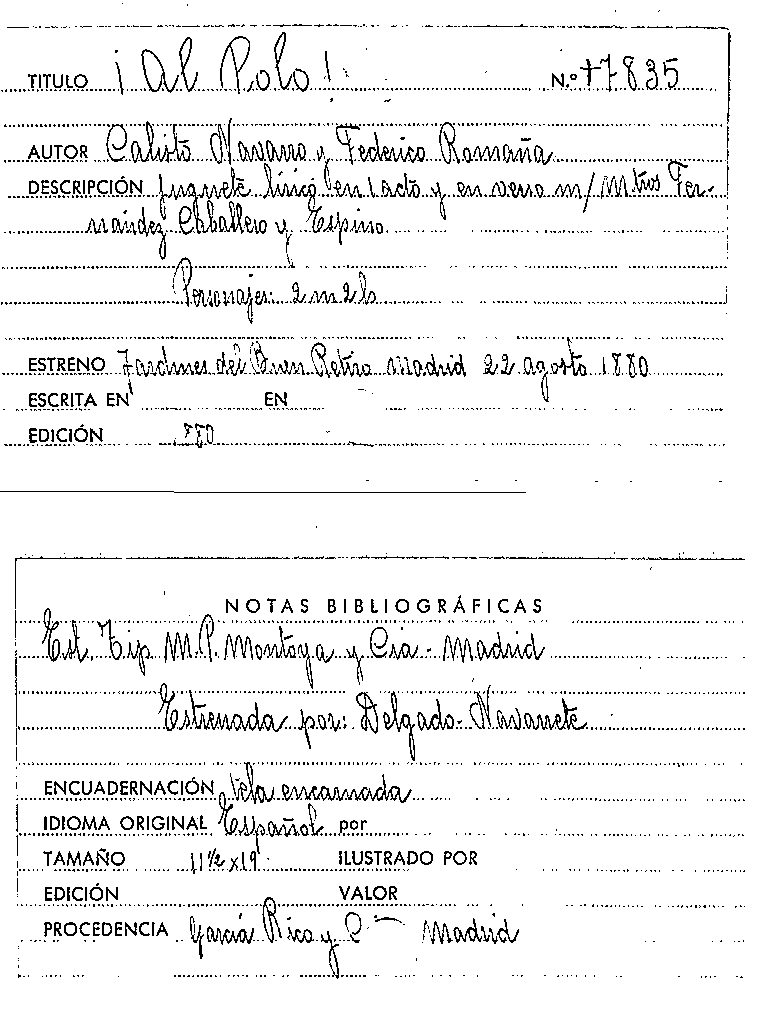 TITULO ¡Al Polo! N.º +7835
AUTOR Calisto Navarro y Federico Romaña
DESCRIPCIÓN Juguete lírico en 1 acto y en verso m/ Mtros Fer-
nández Caballero y Espino.
Personajes: 2 m 2 h
ESTRENO Jardines del Buen Retiro Madrid 22 agosto 1880
ESCRITA EN EN
EDICIÓN 1880
NOTAS BIBLIOGRÁFICAS
Est. Tip. M.P. Montoya y Cía - Madrid
Estrenada por: Delgado - Navarrete
ENCUADERNACIÓN tela encarnada
IDIOMA ORIGINAL Español por
TAMAÑO 11 1/2 x 19 ILUSTRADO POR
EDICIÓN VALOR
PROCEDENCIA García Rico y C.ª Madrid